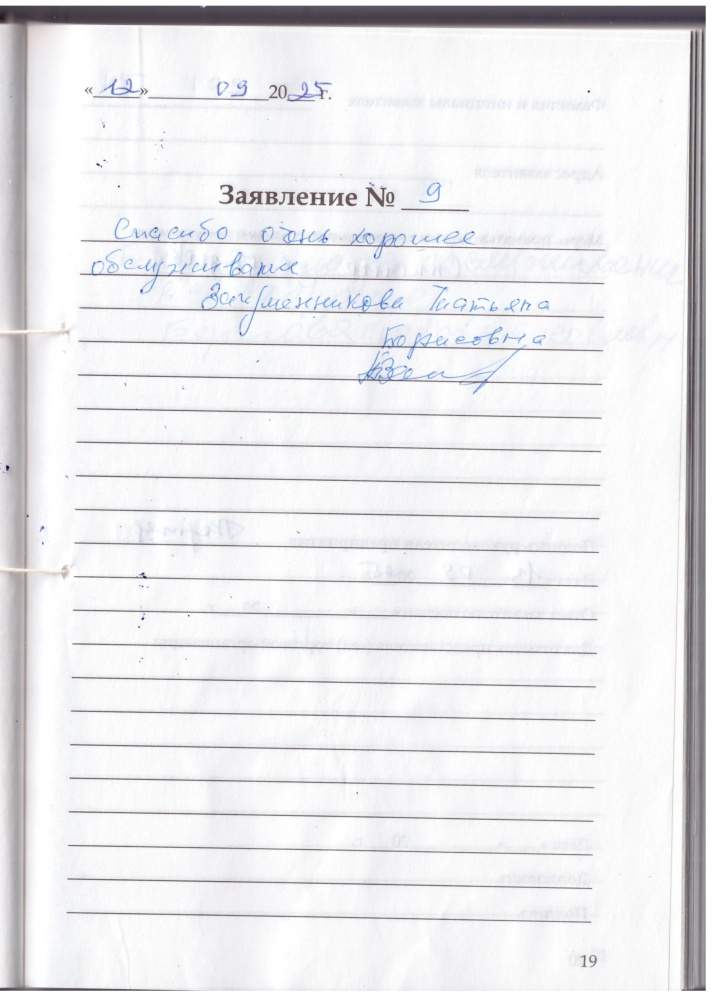 «12» 09 2025 г.
Заявление № 9
Спасибо очень хорошее
обслуживание
Татьяна
Борисовна
19